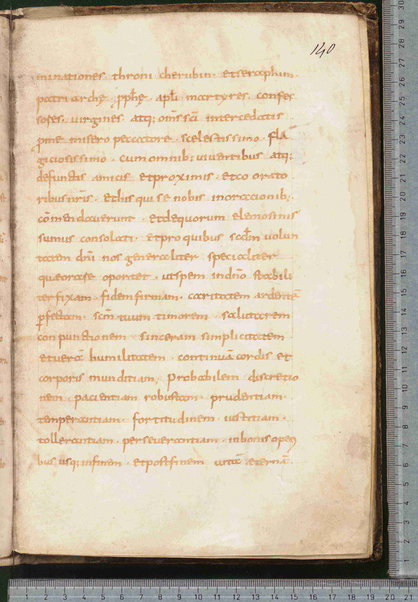 140
minationes throni cherubin · et seraphin
patriarche · pphe · apli martyres · confes
sores · virgines atq; oms sci intercedatis
pme misero peccatore scelestissimo fla
giciosissimo · cum omnib; viventibus atq;
defunctis amicis et proximis · et co orato
ribus nris · et his qui se nobis in oracionib;
commendaverunt · et de quorum elemosinis
sumus consolati · et pro quibus scdm volun
tatem dni nos generaliter specialiter
quae orare oportet · ut spem in dno stabili
ter fixam · fidem firmam · caritatem ardentē
pfectam · scm tuum timorem · salutarem
conpunctionem · sinceram simplicitatem
et veram humilitatem · continuā cordis et
corporis munditiam · probabilem discretio
nem · pacientiam robustam · prudentiam
temperantiam · fortitudinem iustitiam ·
tollerantiam · perseverantiam · in bonis operi
bus usq; in finem · et post finem vitā aeternā